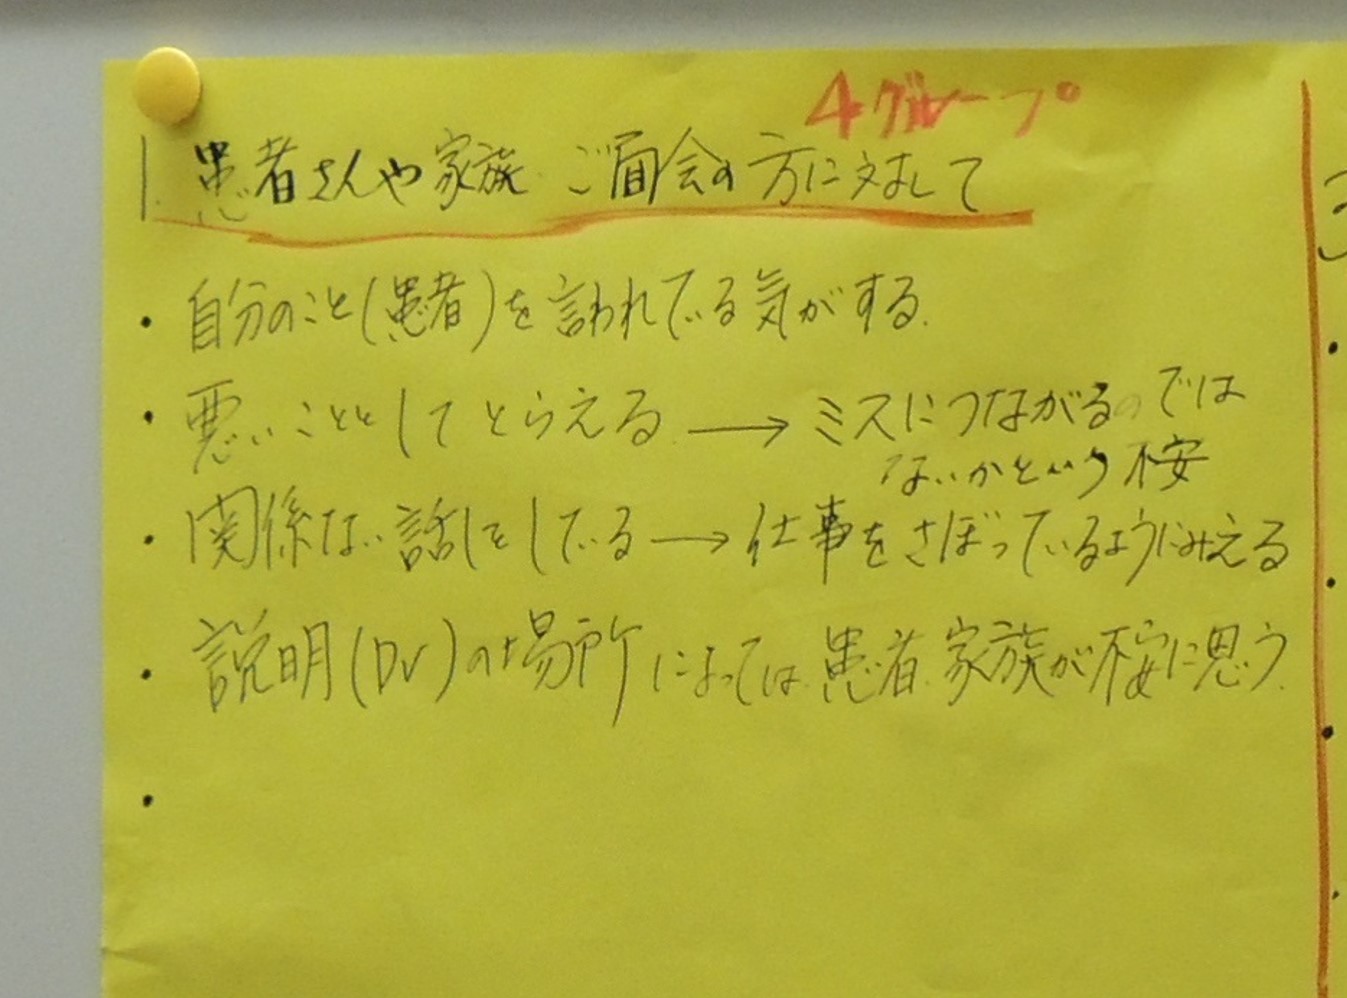 4グループ
1. 患者さんや家族 ご面会の方に対して
・自分のこと(患者)を言われている気がする.
・悪いこととしてとらえる → ミスにつながるのでは
ないかという不安
・関係ない話をしている → 仕事をさぼっているようにみえる
・説明(Dr)の場所によっては、患者、家族が不安に思う.
・